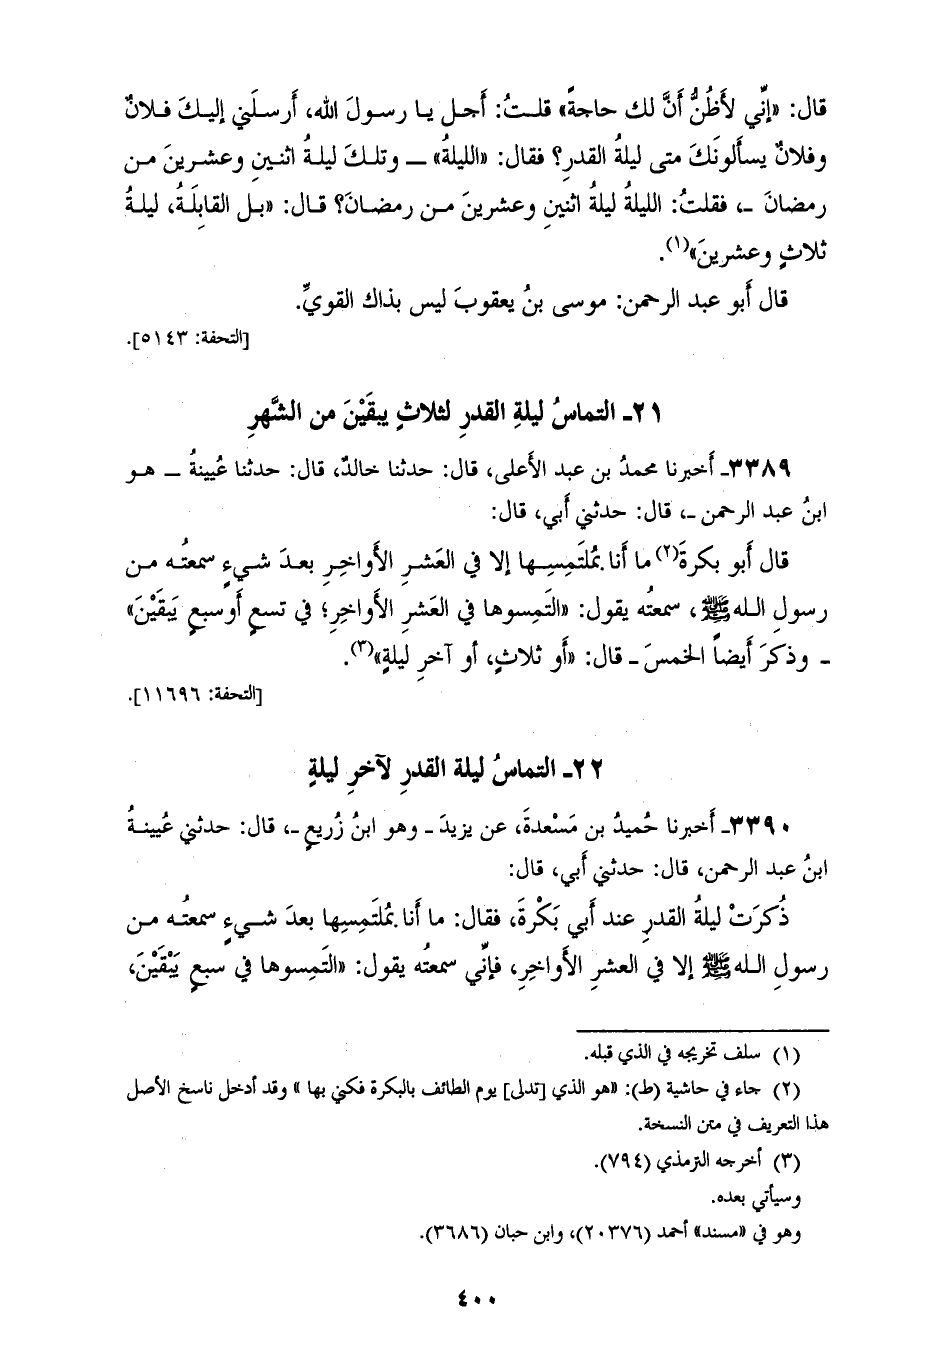 قال: «إنِّي لأَظُنُّ أَنَّ لك حاجةً» قلتُ: أَجل يا رسولَ الله، أَرسلَني إليكَ فلانٌ
وفلانٌ يسألونَكَ متى ليلةُ القدرِ؟ فقال: «الليلةُ» ــ وتلكَ ليلةُ اثنينِ وعشرينَ من
رمضانَ ـ، فقلتُ: الليلةُ ليلةُ اثنينِ وعشرينَ من رمضانَ؟ قال: «بل القابِلَةُ، ليلةُ
ثلاثٍ وعشرينَ»(١).
قال أبو عبد الرحمن: موسى بنُ يعقوبَ ليس بذاك القويِّ.
[التحفة: ٥١٤٣].
٢١ـ التماسُ ليلةِ القدرِ لثلاثٍ يبقَيْنَ من الشَّهرِ
٣٣٨٩ـ أَخبرنا محمدُ بن عبد الأعلى، قال: حدثنا خالدٌ، قال: حدثنا عُيينةُ ــ هو
ابنُ عبد الرحمن ـ، قال: حدثني أَبي، قال:
قال أبو بكرةَ(٢) ما أنا بمُلتَمِسِها إلا في العَشرِ الأَواخِرِ بعدَ شيءٍ سمعتُه من
رسولِ الله ﷺ، سمعتُه يقول: «التَمِسوها في العَشرِ الأَواخِرِ؛ في تسعٍ أَوسبعٍ يَبقَيْنَ»
ـ وذكرَ أَيضاً الخمسَ ـ قال: «أَو ثلاثٍ، أو آخرِ ليلةٍ»(٣).
[التحفة: ١١٦٩٦].
٢٢ـ التماسُ ليلة القدرِ لآخرِ ليلةٍ
٣٣٩٠ـ أَخبرنا حُميدُ بن مَسْعدةَ، عن يزيدَ ـ وهو ابنُ زُريعٍ ـ، قال: حدثني عُيينةُ
ابنُ عبد الرحمن، قال: حدثني أَبي، قال:
ذُكرَتْ ليلةُ القدرِ عند أَبي بَكْرةَ، فقال: ما أَنا بمُلتَمِسِها بعدَ شيءٍ سمعتُه من
رسولِ الله ﷺ إلا في العشرِ الأَواخِرِ، فإنِّي سمعتُه يقول: «التَمِسوها في سبعٍ يَبْقَيْنَ،
(١) سلف تخريجه في الذي قبله.
(٢) جاء في حاشية (ط): «هو الذي [تدلى] يوم الطائف بالبكرة فكني بها» وقد أدخل ناسخ الأصل
هذا التعريف في متن النسخة.
(٣) أخرجه الترمذي (٧٩٤).
وسيأتي بعده.
وهو في «مسند» أحمد (٢٠٣٧٦)، وابن حبان (٣٦٨٦).
٤٠٠